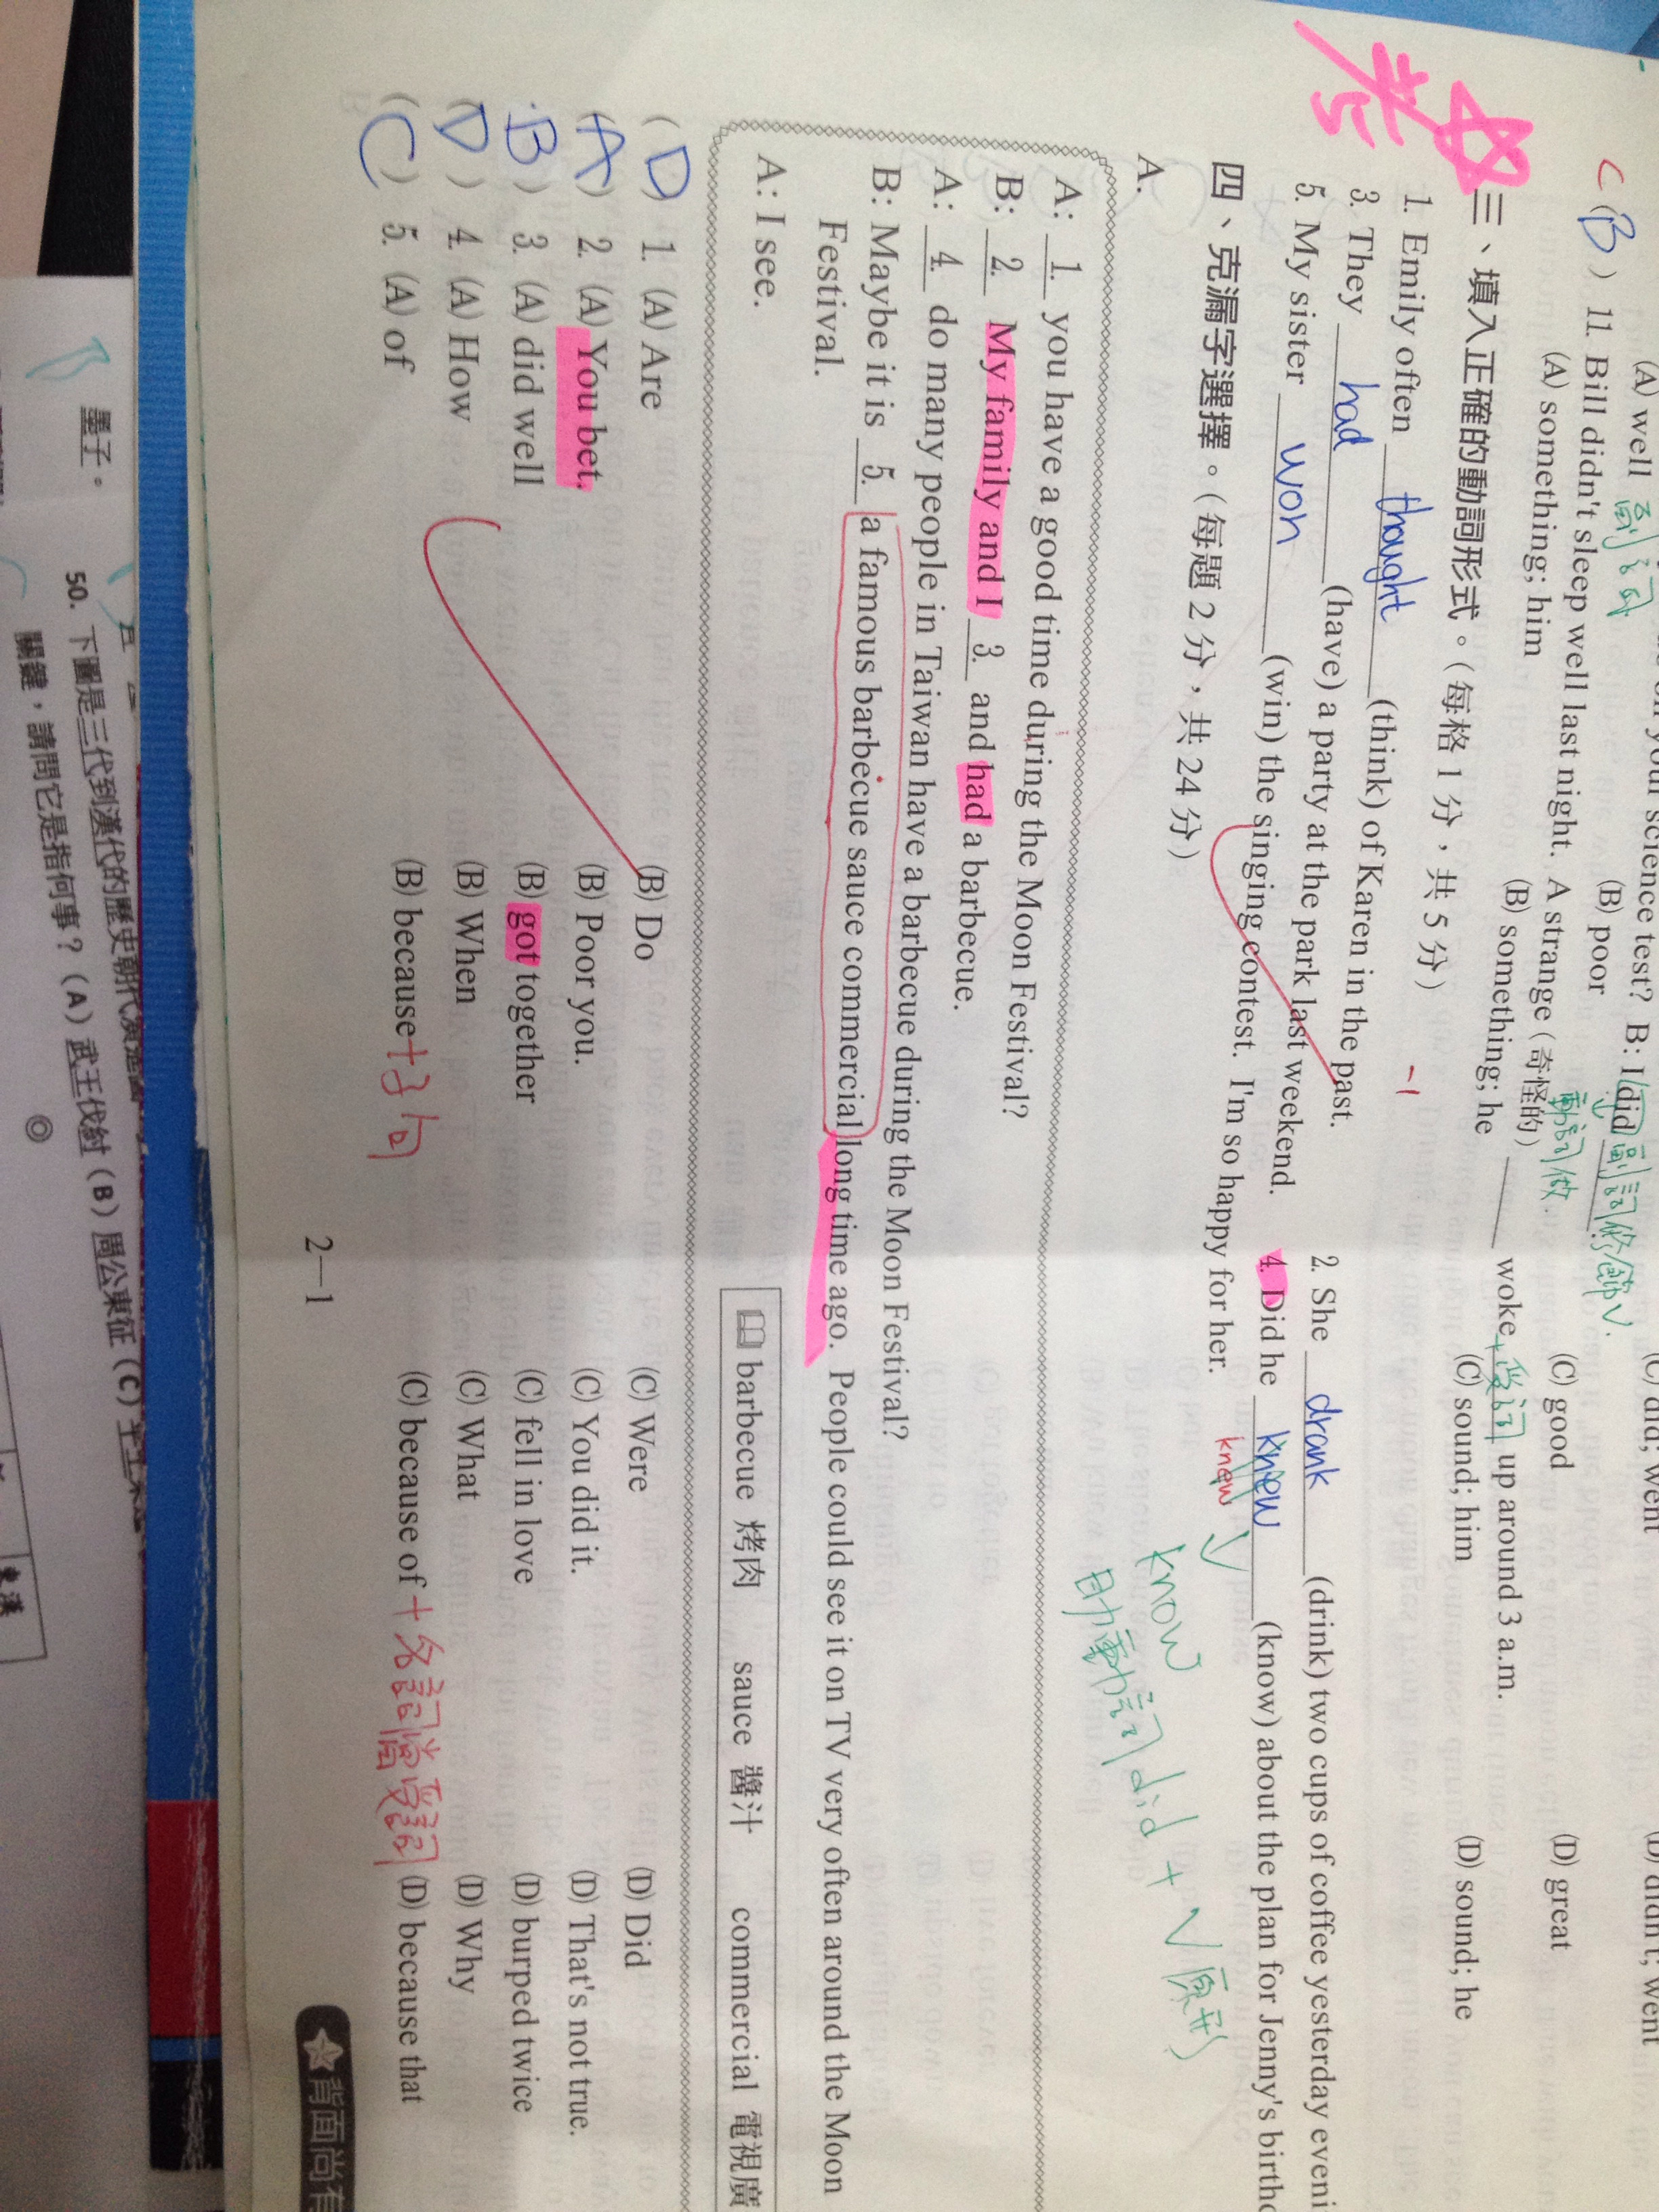 (A) well 副詞
science test? B: I did 副詞修飾V.
(B) poor
(C) good
(D) great
C (B) 11. Bill didn't sleep well last night. A strange (奇怪的) ____ woke + 受詞 up around 3 a.m.
動詞 做
(A) something; him
(B) something; he
(C) sound; him
(D) sound; he
考
三、填入正確的動詞形式。(每格 1 分，共 5 分) -1
1. Emily often thought (think) of Karen in the past.
2. She drank (drink) two cups of coffee yesterday
3. They had (have) a party at the park last weekend.
4. Did he knew (know) about the plan for Jenny's
knew
know
助動詞 did + V原形
5. My sister won (win) the singing contest. I'm so happy for her.
四、克漏字選擇。(每題 2 分，共 24 分)
A.
A: 1. you have a good time during the Moon Festival?
B: 2. My family and I 3. and had a barbecue.
A: 4. do many people in Taiwan have a barbecue during the Moon Festival?
B: Maybe it is 5. a famous barbecue sauce commercial long time ago. People could see it on TV very often around the Moon
Festival.
A: I see.
barbecue 烤肉 sauce 醬汁 commercial 電視廣
(D) 1. (A) Are (B) Do (C) Were (D) Did
(A) 2. (A) You bet. (B) Poor you. (C) You did it. (D) That's not true.
(B) 3. (A) did well (B) got together (C) fell in love (D) burped twice
(D) 4. (A) How (B) When (C) What (D) Why
(C) 5. (A) of (B) because+子句 (C) because of + 名詞當受詞 (D) because that
2—1
背面尚有
墨子。
50. 下圖是三代到漢代的歷史朝代演進圖
關鍵，請問它是指何事？(A) 武王伐紂 (B) 周公東征 (C)
◎